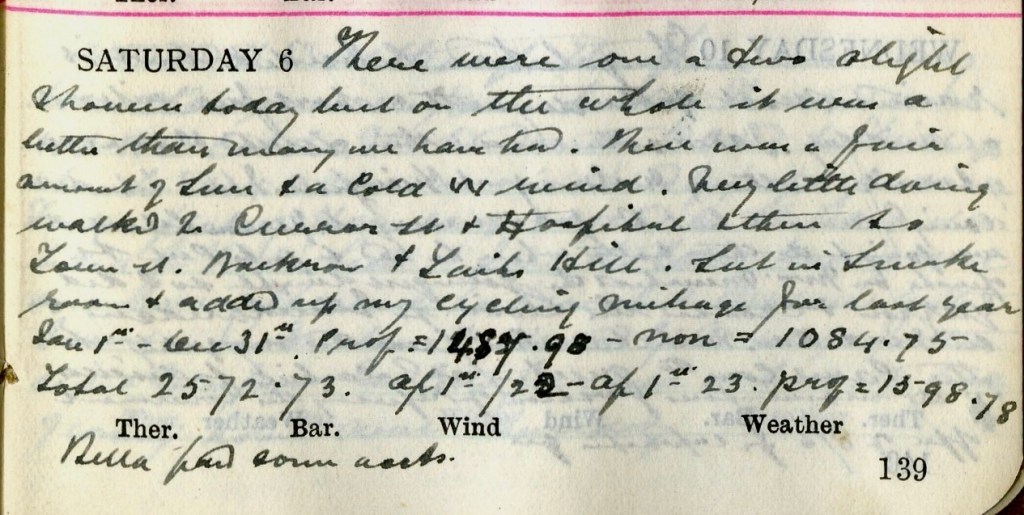 SATURDAY 6 There were one a two slight
showers today but on the whole it was a
better than many we have had. There was a fair
amount of Sun & a Cold W wind. Very little doing
walked to St & Hospital & then to
Town St. Backrow & Lairs Hill. Sat in Smoke
room & added up my cycling mileage for last year
Jan 1st - Dec 31st. Prof = 1487.98 - non = 1084.75
Total 2572.73. Ap 1st /22 - Ap 1st 23. prof = 1598.78
Ther. Bar. Wind Weather
Bella paid some accts.
139